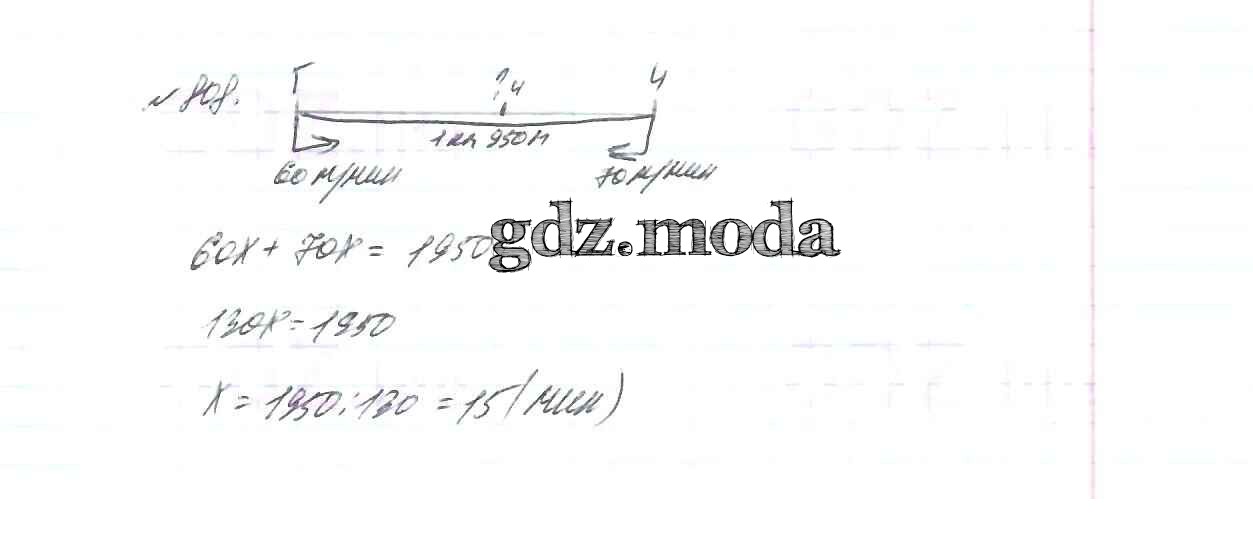 № 808.
Г ? ч Ч
1 км 950 м
60 м/мин 70 м/мин
gdz.moda
60x + 70x = 1950
130x = 1950
x = 1950 : 130 = 15 (мин)